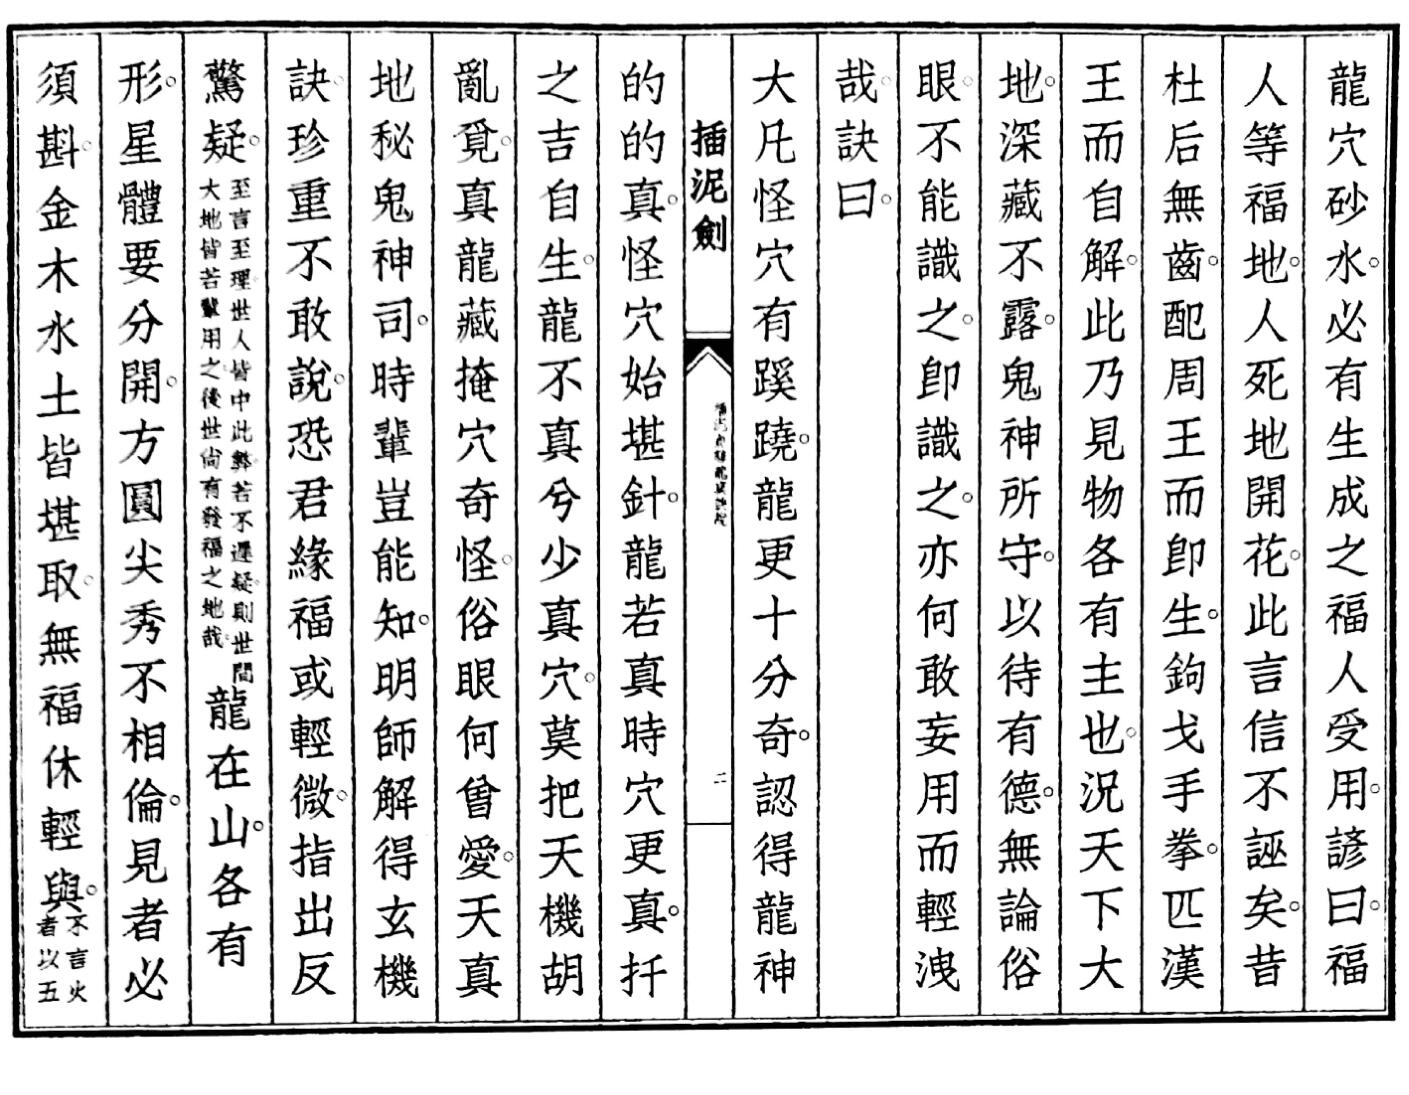 龍穴砂水。必有生成之福人受用。諺曰。福
人等福地。人死地開花。此言信不誣矣。昔
杜后無齒。配周王而卽生。鉤戈手拳。匹漢
王而自解。此乃見物各有主也。況天下大
地。深藏不露。鬼神所守。以待有德。無論俗
眼。不能識之。卽識之。亦何敢妄用而輕洩
哉。訣曰。
大凡怪穴有蹊蹺。龍更十分奇。認得龍神
插泥劍
二
的的真。怪穴始堪針。龍若真時穴更真。扦
之吉自生。龍不真兮少真穴。莫把天機胡
亂覓。真龍藏掩穴奇怪。俗眼何曾愛。天真
地秘鬼神司。時輩豈能知。明師解得玄機
訣。珍重不敢說。恐君緣福或輕微。指出反
驚疑。至言至理。世人皆中此弊。若不遲疑。則世間
大地皆若輩用之。後世尚有發福之地哉。龍在山。各有
形。星體要分開。方圓尖秀不相倫。見者必
須斟。金木水土皆堪取。無福休輕與。不言火
者以五